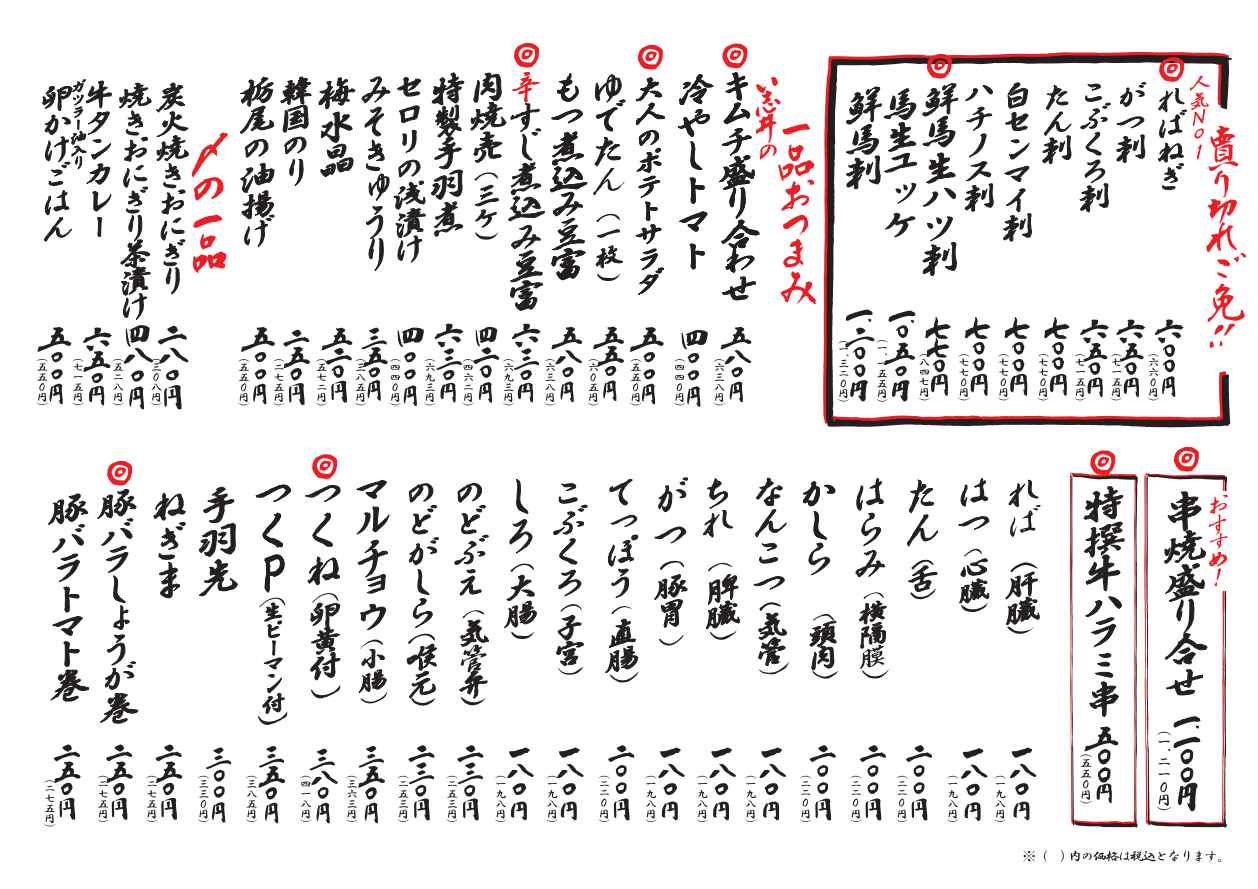 売り切れご免!!
人気NO1
ればねぎ 六〇〇円 (六六〇円)
がつ刺 六五〇円 (七一五円)
こぶくろ刺 六五〇円 (七一五円)
たん刺 七〇〇円 (七七〇円)
白センマイ刺 七〇〇円 (七七〇円)
ハチノス刺 七〇〇円 (七七〇円)
鮮馬生ハツ刺 七七〇円 (八四七円)
馬生ユッケ 一、〇五〇円 (一、一五五円)
鮮馬刺 一、二〇〇円 (一、三二〇円)
い志井の
一品おつまみ
キムチ盛り合わせ 五八〇円 (六三八円)
冷やしトマト 四〇〇円 (四四〇円)
大人のポテトサラダ 五〇〇円 (五五〇円)
ゆでたん(一枚) 五五〇円 (六〇五円)
もつ煮込み豆富 五八〇円 (六三八円)
辛すじ煮込み豆富 六三〇円 (六九三円)
肉焼売(三ケ) 四二〇円 (四六二円)
特製手羽煮 六三〇円 (六九三円)
セロリの浅漬け 四〇〇円 (四四〇円)
みそきゅうり 三五〇円 (三八五円)
梅水晶 五二〇円 (五七二円)
韓国のり 二五〇円 (二七五円)
栃尾の油揚げ 五〇〇円 (五五〇円)
〆の一品
炭火焼きおにぎり 二八〇円 (三〇八円)
焼きおにぎり茶漬け 四八〇円 (五二八円)
牛タンカレー 六五〇円 (七一五円)
ガツラー油入り
卵かけごはん 五〇〇円 (五五〇円)
おすすめ!
串焼盛り合せ 一、一〇〇円 (一、二一〇円)
特撰牛ハラミ串 五〇〇円 (五五〇円)
れば(肝臓) 一八〇円 (一九八円)
はつ(心臓) 一八〇円 (一九八円)
たん(舌) 二〇〇円 (二二〇円)
はらみ(横隔膜) 二〇〇円 (二二〇円)
かしら(頭肉) 二〇〇円 (二二〇円)
なんこつ(気管) 一八〇円 (一九八円)
ちれ(脾臓) 一八〇円 (一九八円)
がつ(豚胃) 一八〇円 (一九八円)
てっぽう(直腸) 二〇〇円 (二二〇円)
こぶくろ(子宮) 一八〇円 (一九八円)
しろ(大腸) 一八〇円 (一九八円)
のどぶえ(気管弁) 二三〇円 (二五三円)
のどがしら(喉元) 二三〇円 (二五三円)
マルチョウ(小腸) 三五〇円 (三六三円)
つくね(卵黄付) 三八〇円 (四一八円)
つくP(生ピーマン付) 三五〇円 (三八五円)
手羽先 三〇〇円 (三三〇円)
ねぎま 二五〇円 (二七五円)
豚バラしょうが巻 二五〇円 (二七五円)
豚バラトマト巻 二五〇円 (二七五円)
※( )内の価格は税込となります。